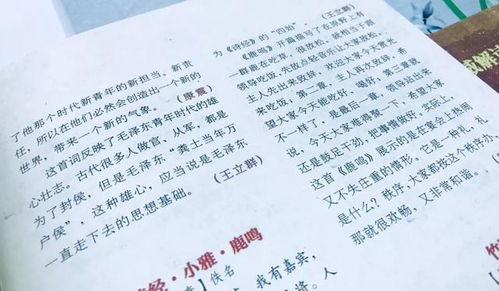 了他那个时代新青年的新担当、新责
任，所以在他们必然会创造出一个新的
世界，带来一个新的气象。（康震）
这首词反映了毛泽东青年时代的雄
心壮志。古代很多人做官、从军，都是
为了封侯，但是毛泽东“粪土当年万
户侯”，这种雄心，应当说是毛泽东
一直走下去的思想基础。（王立群）
经·小雅·鹿鸣
】佚名
我有嘉宾，
将。人
为《诗经》的“四始”。（王立群）
《鹿鸣》开篇描写了在原野上有
一群鹿在吃草，很放松，就相当于跟
领导吃饭，先放点轻音乐让大家放松。
主人先出来致辞，欢迎大家今天赏光
来吃饭，第二章，主人再次致辞，希
望大家今天能吃好、喝好。第三章就
不一样了，是最后一章，领导站出来
说，今天大家难得聚一下，希望大家
还是鼓足干劲，把事情做好。实际上，
这首《鹿鸣》展示的是在宴会上热闹
又不失庄重的情形。它是一种礼，礼
是什么？秩序，大家都按这个秩序办，
那就很欢畅，又非常和谐。